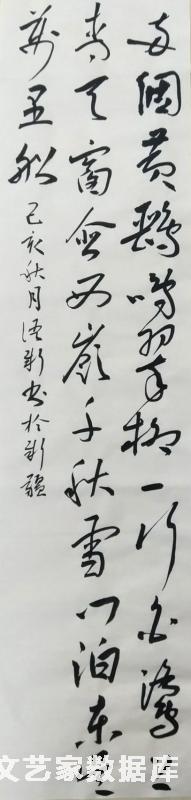 两個黄鸝鳴翠柳一行白鷺上
青天窗含西嶺千秋雪门泊東吴
萬里船
己亥秋月新书於新疆
文艺家数据库